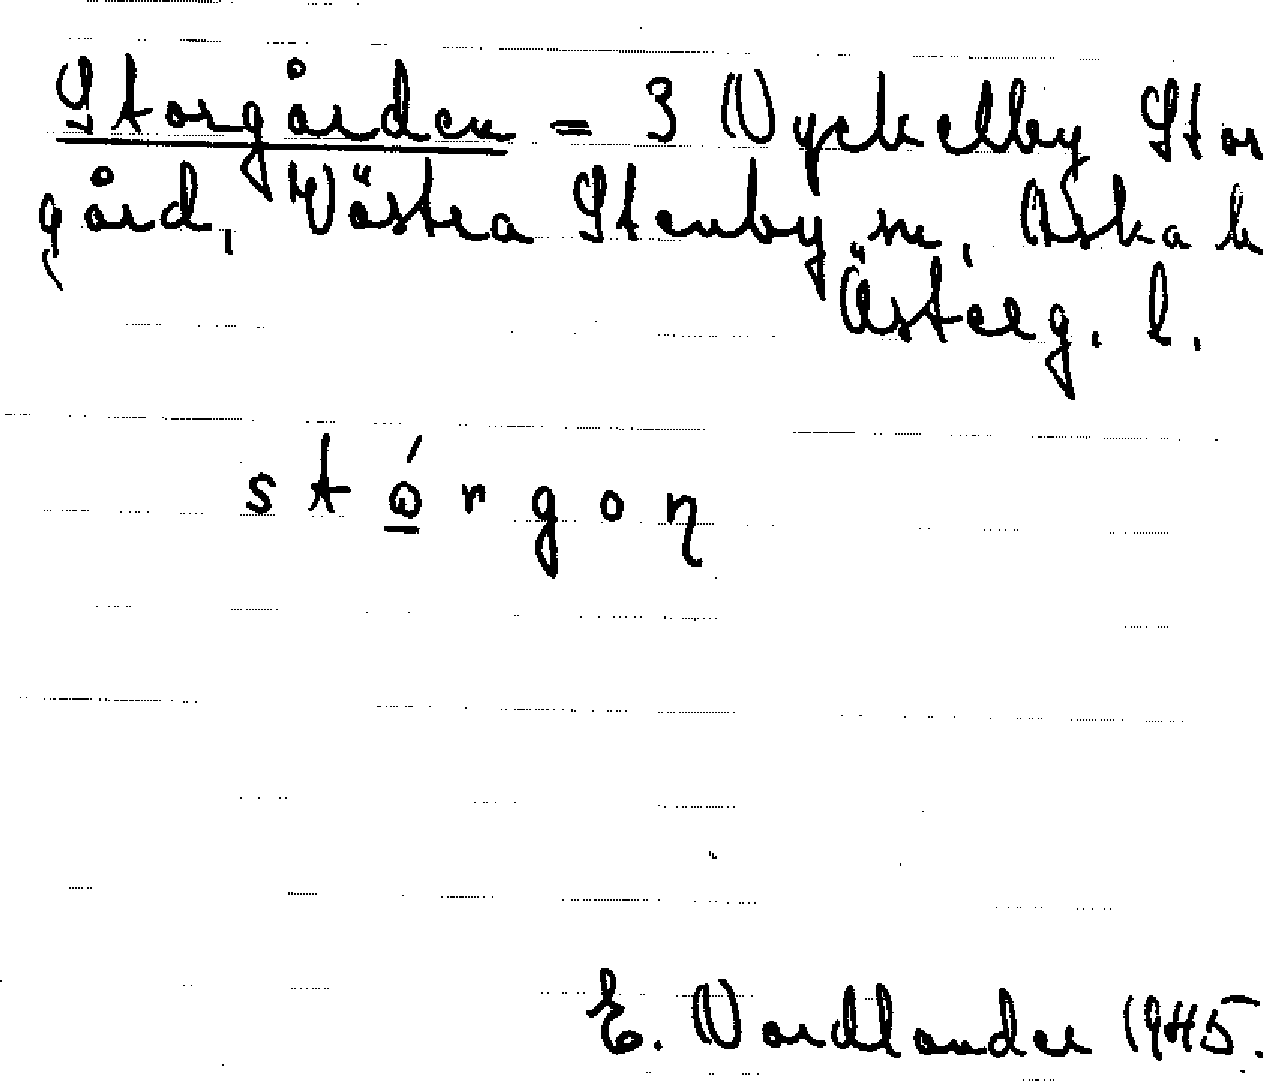 Storgården = 3 Nyckelby Stor
gård, Västra Stenby sn, Aska h
Österg. l.
stórgon
E. Nordlander 1945.